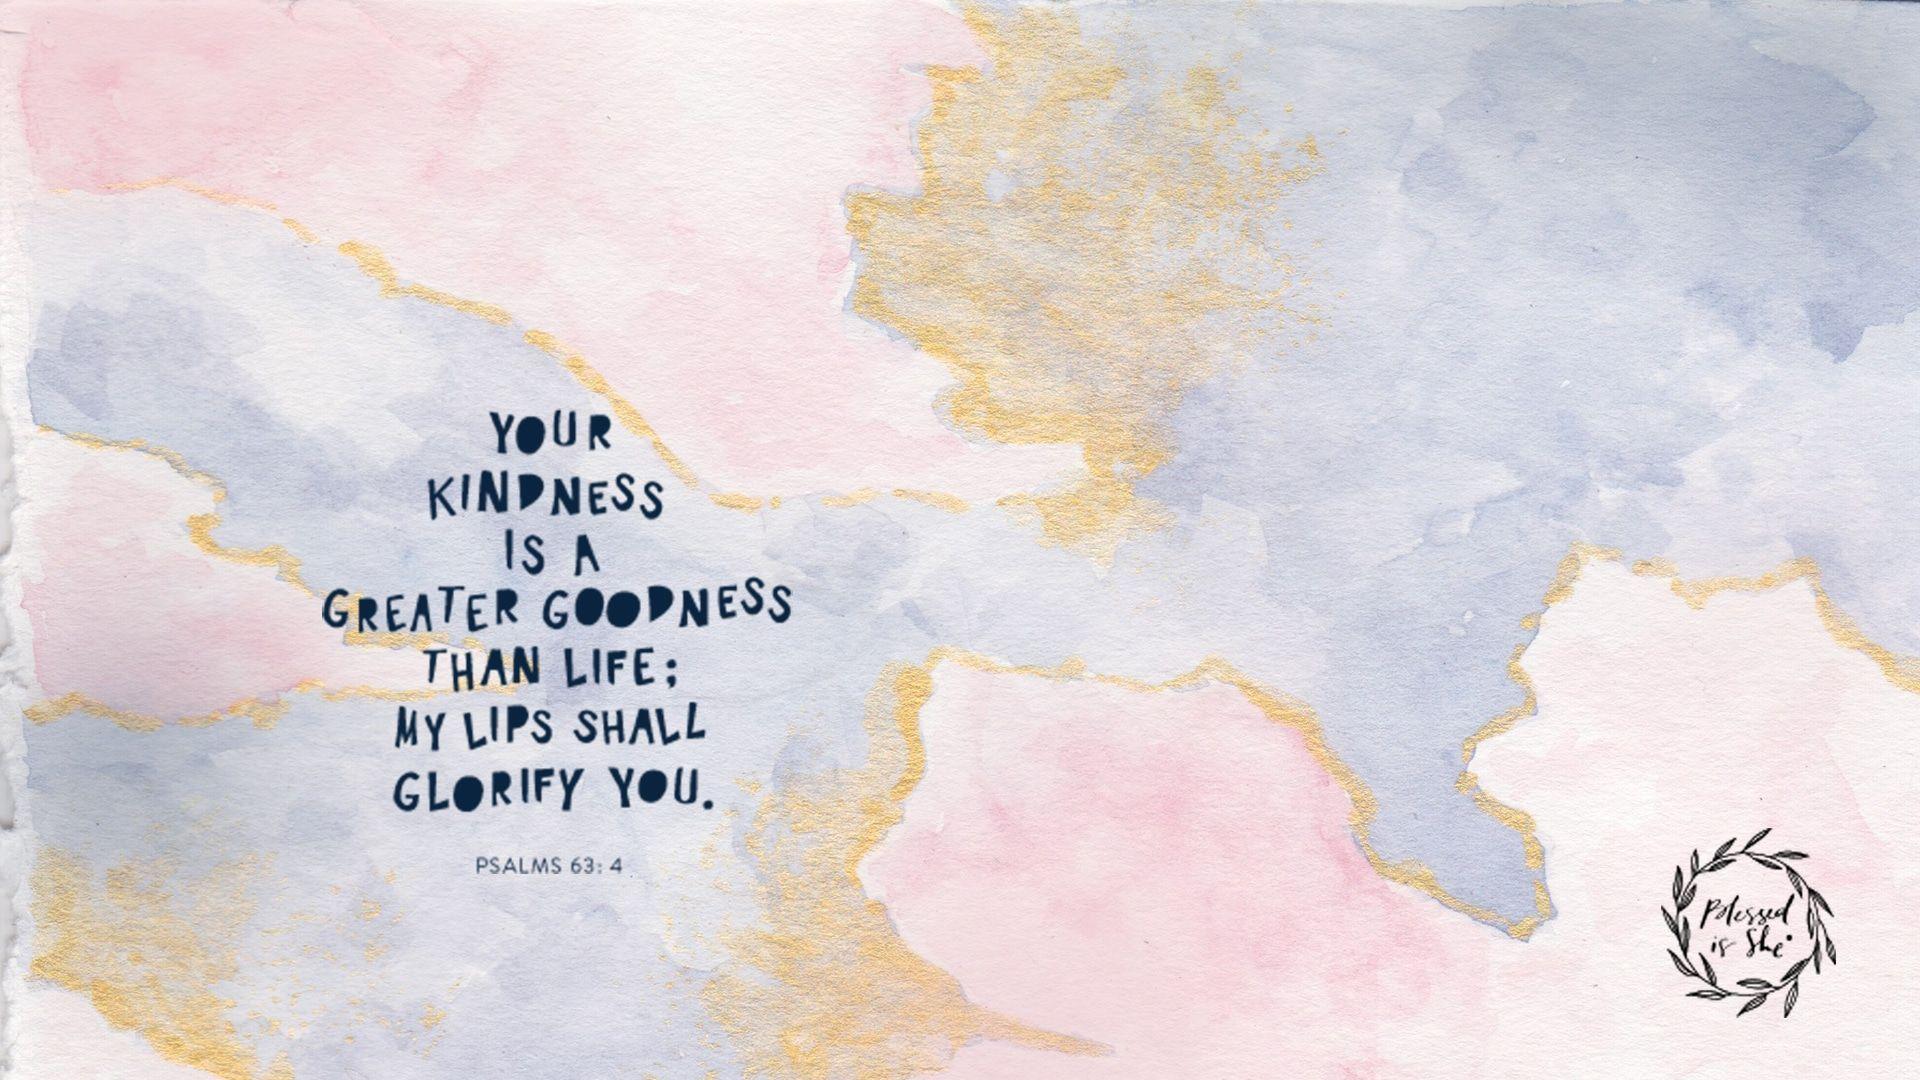 YOUR
KINDNESS
IS A
GREATER GOODNESS
THAN LIFE;
MY LIPS SHALL
GLORIFY YOU.
PSALMS 63: 4
Blessed
is She